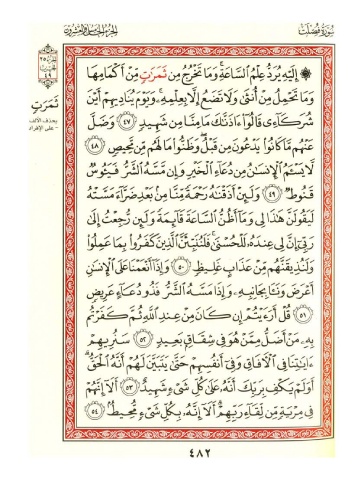 سُورَةُ فُصِّلَتْ
الجزء الخامس والعشرون
إِلَيْهِ يُرَدُّ عِلْمُ السَّاعَةِ وَمَا تَخْرُجُ مِن ثَمَرَتٍ مِّنْ أَكْمَامِهَا
وَمَا تَحْمِلُ مِنْ أُنثَىٰ وَلَا تَضَعُ إِلَّا بِعِلْمِهِۦ وَيَوْمَ يُنَادِيهِمْ أَيْنَ
شُرَكَآءِى قَالُوٓا۟ ءَاذَنَّٰكَ مَامِنَّا مِن شَهِيدٍ ٤٧ وَضَلَّ
عَنْهُم مَّا كَانُوا۟ يَدْعُونَ مِن قَبْلُ وَظَنُّوا۟ مَا لَهُم مِّن مَّحِيصٍ ٤٨
لَّا يَسْـَٔمُ الْإِنسَٰنُ مِن دُعَآءِ الْخَيْرِ وَإِن مَّسَّهُ الشَّرُّ فَيَـُٔوسٌ
قَنُوطٌ ٤٩ وَلَئِنْ أَذَقْنَٰهُ رَحْمَةً مِّنَّا مِنۢ بَعْدِ ضَرَّآءَ مَسَّتْهُ
لَيَقُولَنَّ هَٰذَا لِى وَمَآ أَظُنُّ السَّاعَةَ قَآئِمَةً وَلَئِن رُّجِعْتُ إِلَىٰ
رَبِّىٓ إِنَّ لِى عِندَهُۥ لَلْحُسْنَىٰ فَلَنُنَبِّئَنَّ الَّذِينَ كَفَرُوا۟ بِمَا عَمِلُوا۟
وَلَنُذِيقَنَّهُم مِّنْ عَذَابٍ غَلِيظٍ ٥٠ وَإِذَآ أَنْعَمْنَا عَلَى الْإِنسَٰنِ
أَعْرَضَ وَنَـَٔا بِجَانِبِهِۦ وَإِذَا مَسَّهُ الشَّرُّ فَذُو دُعَآءٍ عَرِيضٍ
٥١ قُلْ أَرَءَيْتُمْ إِن كَانَ مِنْ عِندِ اللَّهِ ثُمَّ كَفَرْتُم
بِهِۦ مَنْ أَضَلُّ مِمَّنْ هُوَ فِى شِقَاقٍۭ بَعِيدٍ ٥٢ سَنُرِيهِمْ
ءَايَٰتِنَا فِى الْءَافَاقِ وَفِىٓ أَنفُسِهِمْ حَتَّىٰ يَتَبَيَّنَ لَهُمْ أَنَّهُ الْحَقُّ
أَوَلَمْ يَكْفِ بِرَبِّكَ أَنَّهُۥ عَلَىٰ كُلِّ شَىْءٍ شَهِيدٌ ٥٣ أَلَآ إِنَّهُمْ
فِى مِرْيَةٍ مِّن لِّقَآءِ رَبِّهِمْ أَلَآ إِنَّهُۥ بِكُلِّ شَىْءٍ مُّحِيطٌۢ ٥٤
٤٨٢
٢٥
٤٩
ثَمَرَتٍ
بحذف الألف
على الإفراد